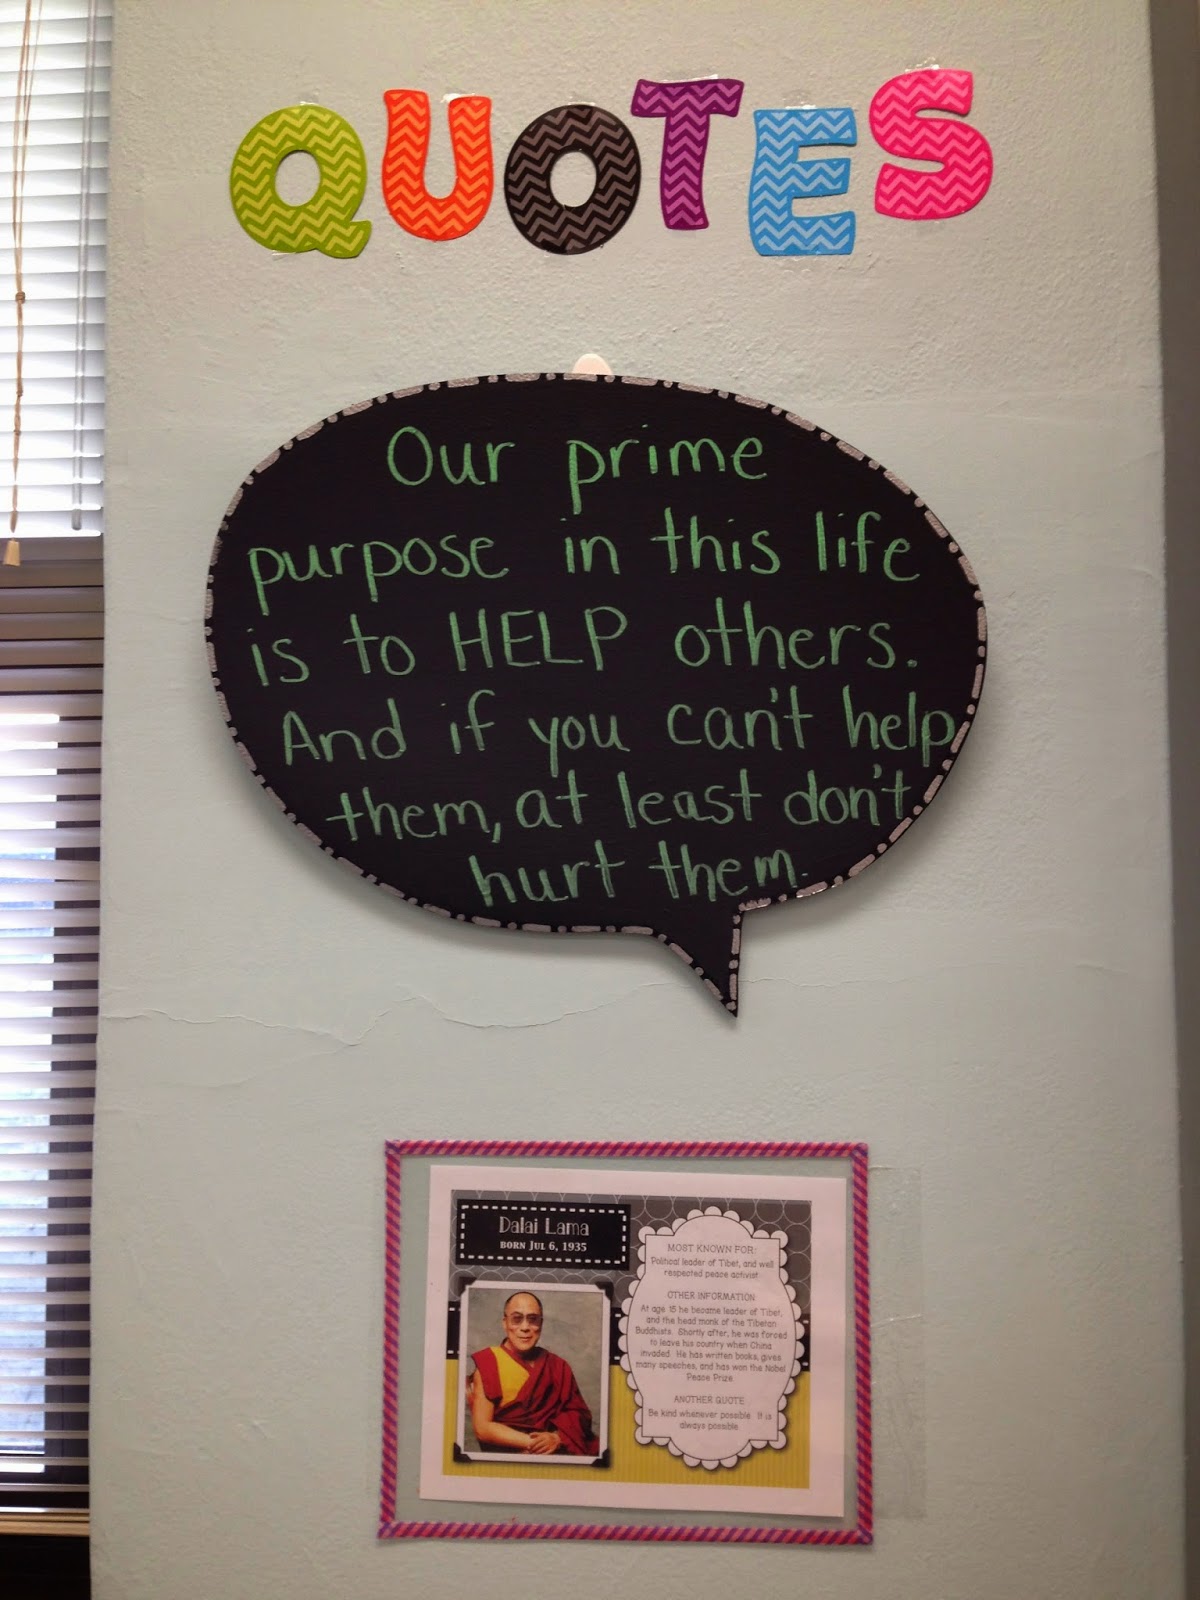 QUOTES
Our prime
purpose in this life
is to HELP others.
And if you can't help
them, at least don't
hurt them.
Dalai Lama
BORN JUL 6, 1935
MOST KNOWN FOR:
Political leader of Tibet, and well
respected peace activist.
OTHER INFORMATION
At age 15 he became leader of Tibet,
and the head monk of the Tibetan
Buddhists. Shortly after, he was forced
to leave his country when China
invaded. He has written books, gives
many speeches, and has won the Nobel
Peace Prize.
ANOTHER QUOTE
Be kind whenever possible. It is
always possible.